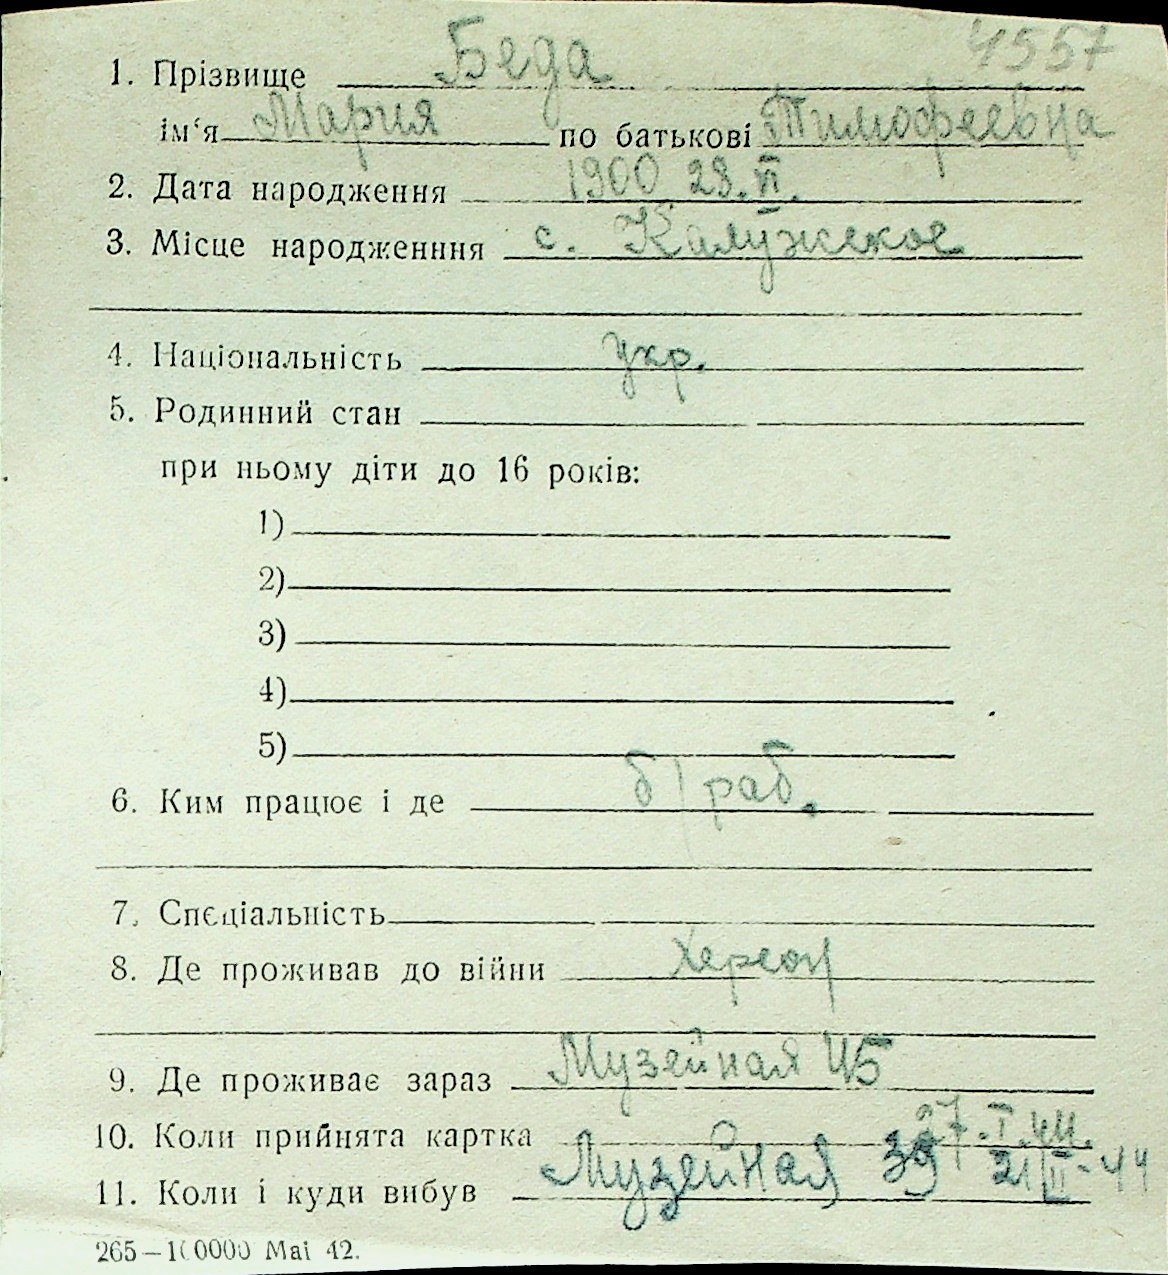 4557
1. Прізвище Беда
ім'я Мария по батькові Тимофеевна
2. Дата народження 1900 28. VI.
3. Місце народженння с. Калужское
4. Національність укр.
5. Родинний стан
при ньому діти до 16 років:
1)
2)
3)
4)
5)
6. Ким працює і де б/раб.
7. Спєціальність
8. Де проживав до війни Херсон
9. Де проживає зараз Музейная 45
10. Коли прийнята картка 27.I.44.
11. Коли і куди вибув Музейная 39 21/II-44
265—100000 Mai 42.